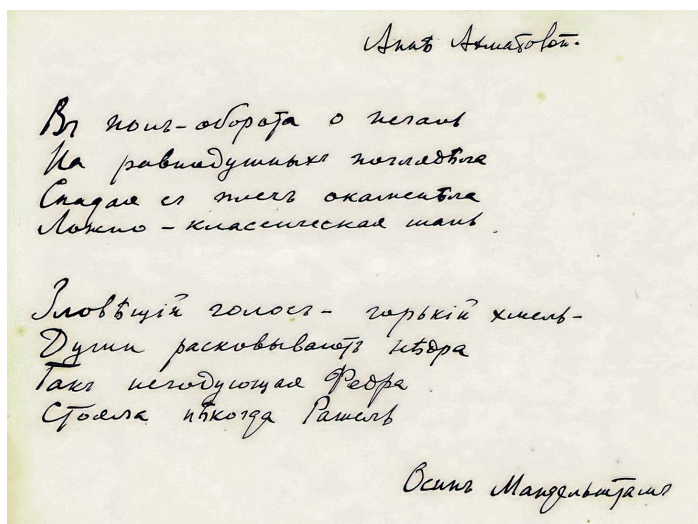 Аннѣ Ахматовой.
Въ полъ-оборота о печаль
На равнодушныхъ поглядѣла
Спадая съ плечъ окаменѣла
Ложно-классическая шаль.
Зловѣщій голосъ – горькій хмель –
Души расковываютъ нѣдра
Такъ негодующая Федра
Стояла нѣкогда Рашель
Осипъ Мандельштамъ